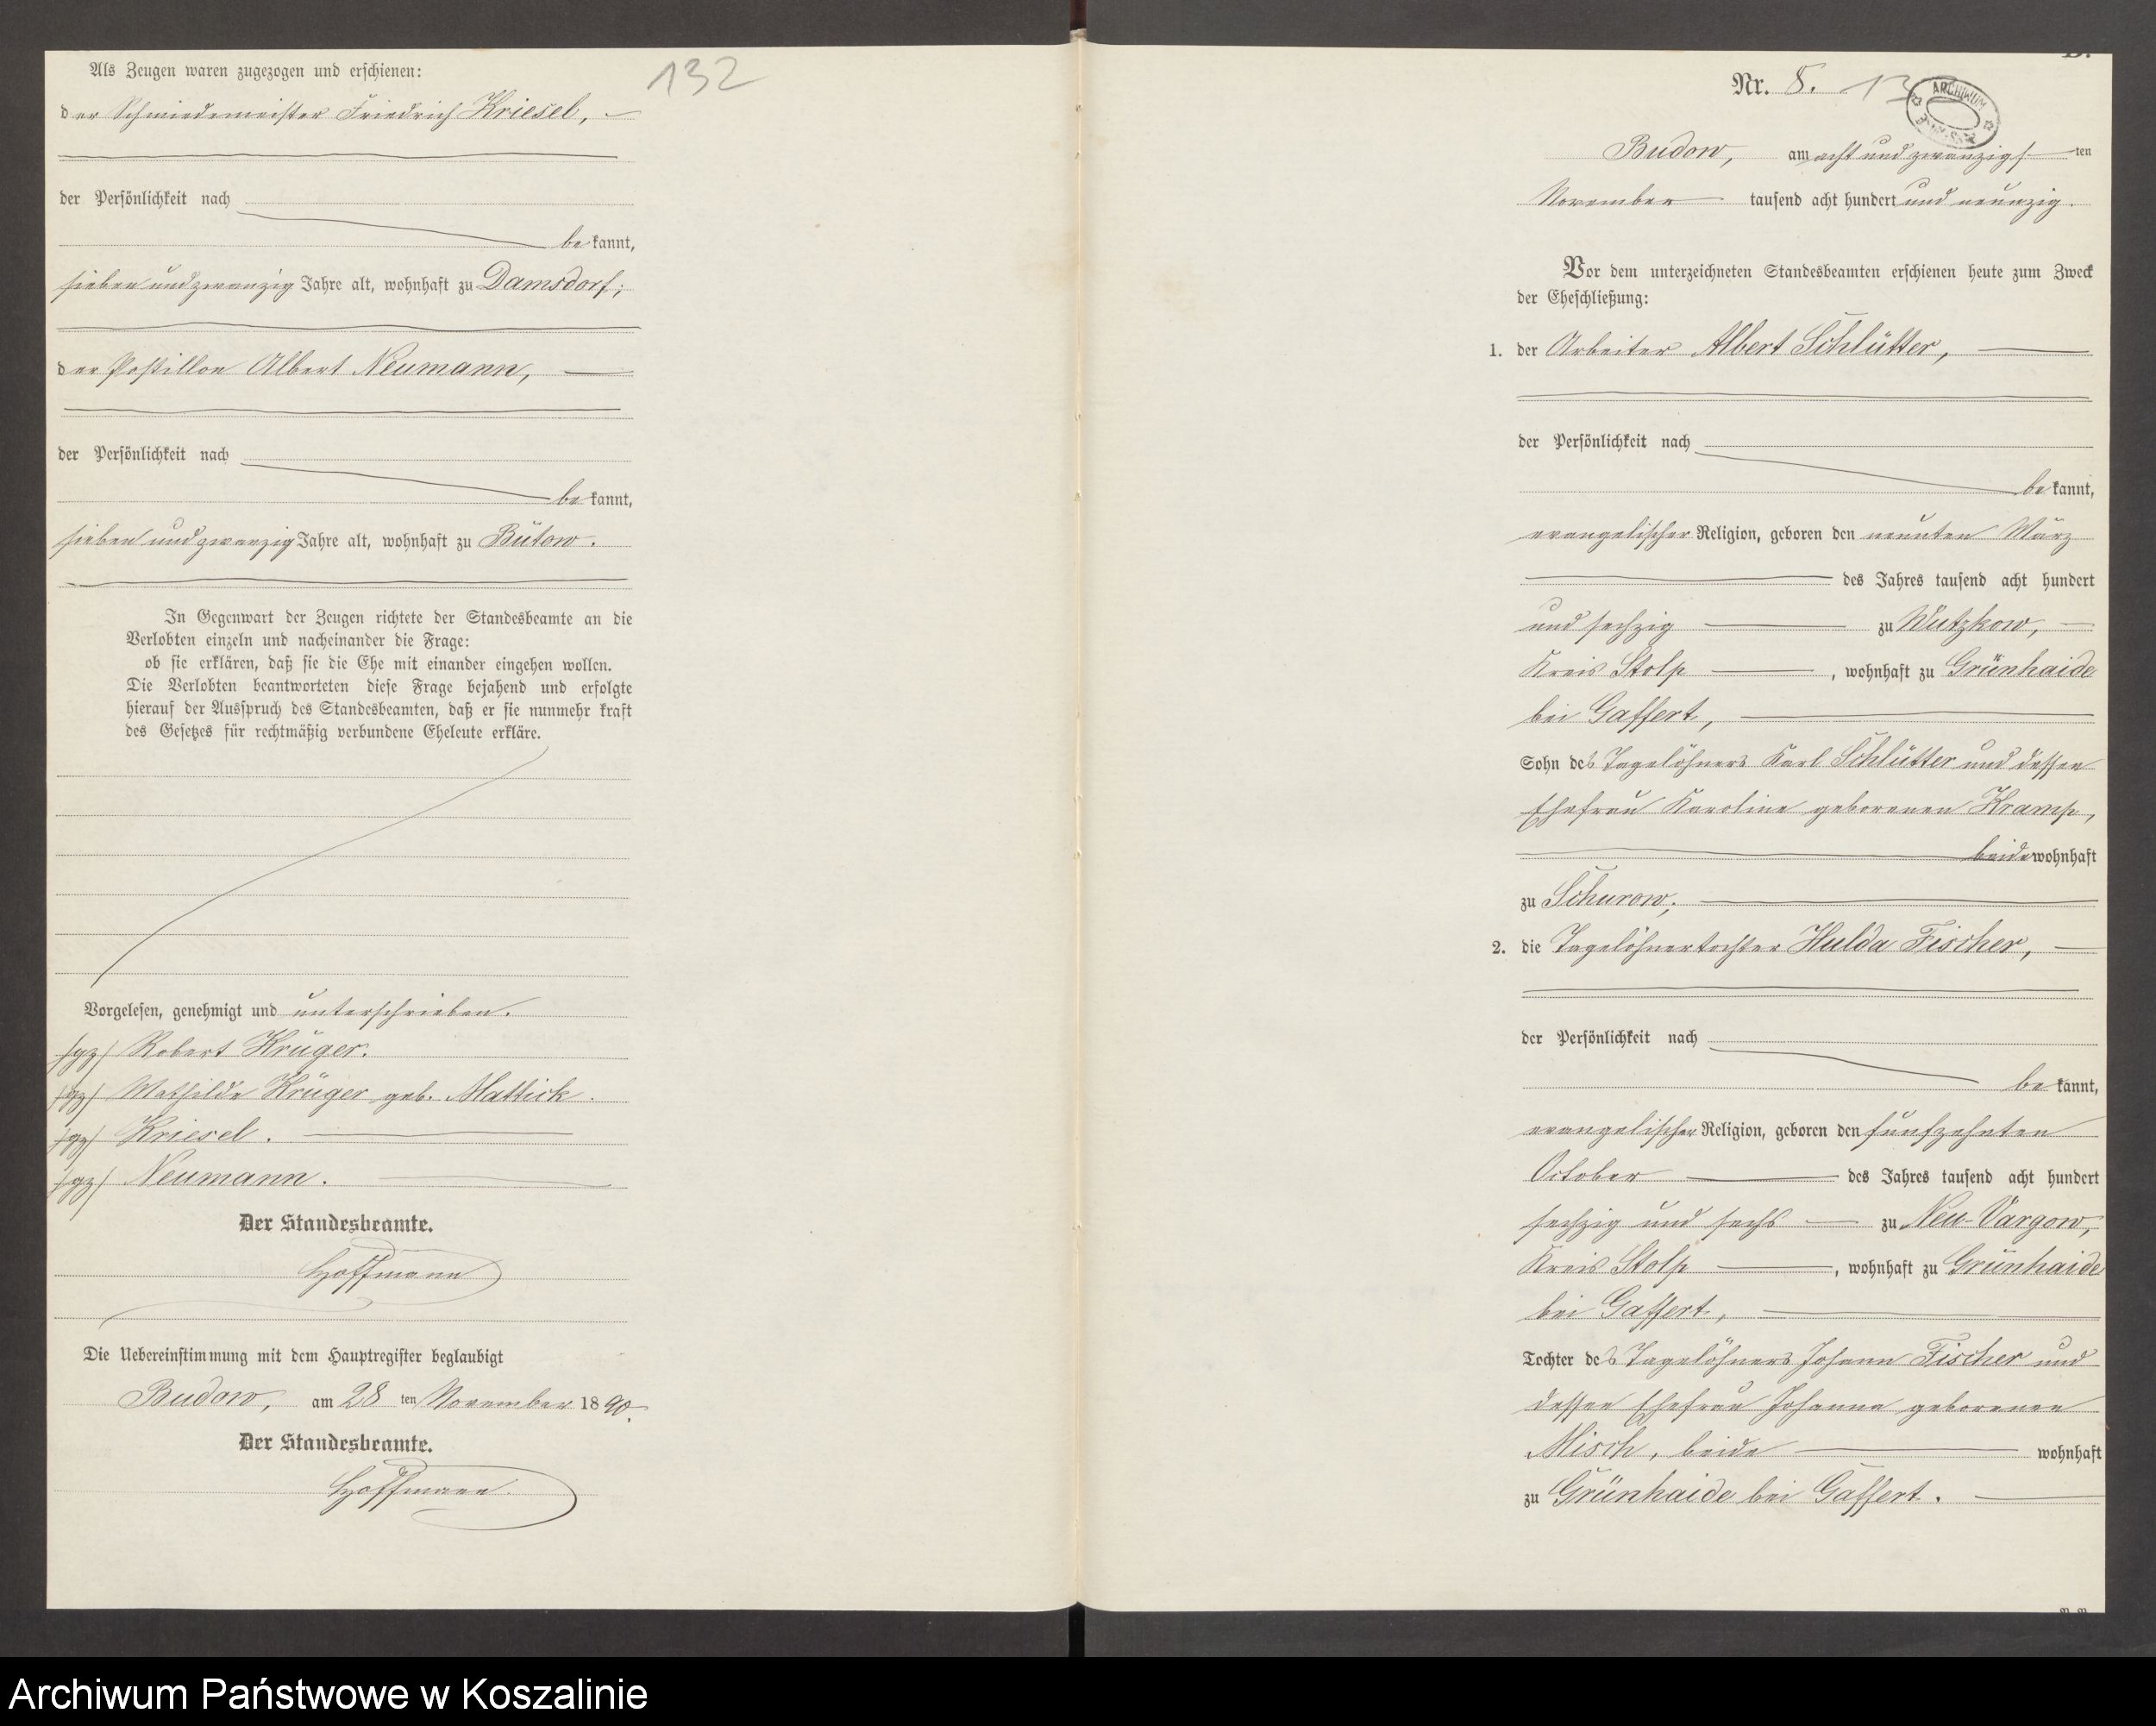 Als Zeugen waren zugezogen und erschienen:
132
der Schmiedemeister Friedrich Kriesel,
der Persönlichkeit nach
be kannt,
sieben und zwanzig Jahre alt, wohnhaft zu Damsdorf;
der Postillon Albert Neumann,
der Persönlichkeit nach
be kannt,
sieben und zwanzig Jahre alt, wohnhaft zu Bütow.
In Gegenwart der Zeugen richtete der Standesbeamte an die
Verlobten einzeln und nacheinander die Frage:
ob sie erklären, daß sie die Ehe mit einander eingehen wollen.
Die Verlobten beantworteten diese Frage bejahend und erfolgte
hierauf der Ausspruch des Standesbeamten, daß er sie nunmehr kraft
des Gesetzes für rechtmäßig verbundene Eheleute erkläre.
Vorgelesen, genehmigt und unterschrieben.
/gz/ Robert Krüger.
/gz/ Mathilde Krüger geb. Mattick.
/gz/ Kriesel.
/gz/ Neumann.
Der Standesbeamte.
Hoffmann
Die Uebereinstimmung mit dem Hauptregister beglaubigt
Budow, am 28 ten November 1890.
Der Standesbeamte.
Hoffmann.
Nr. 8.
ARCHIWUM
Budow, am acht und zwanzigsten
November tausend acht hundert und neunzig.
Vor dem unterzeichneten Standesbeamten erschienen heute zum Zweck
der Eheschließung:
1. der Arbeiter Albert Schlütter,
der Persönlichkeit nach
be kannt,
evangelischer Religion, geboren den neunten März
des Jahres tausend acht hundert
und sechzig zu Wutzkow,
Kreis Stolp, wohnhaft zu Grünhaide
bei Gaffert,
Sohn des Tagelöhners Karl Schlütter und dessen
Ehefrau Karoline geborenen Kramp,
beide wohnhaft
zu Schurow;
2. die Tagelöhnertochter Hulda Fischer,
der Persönlichkeit nach
be kannt,
evangelischer Religion, geboren den fünfzehnten
October des Jahres tausend acht hundert
sechzig und sechs zu Neu-Vargow,
Kreis Stolp, wohnhaft zu Grünhaide
bei Gaffert,
Tochter des Tagelöhners Johann Fischer und
dessen Ehefrau Johanna geborenen
Misch, beide wohnhaft
zu Grünhaide bei Gaffert.
Archiwum Państwowe w Koszalinie